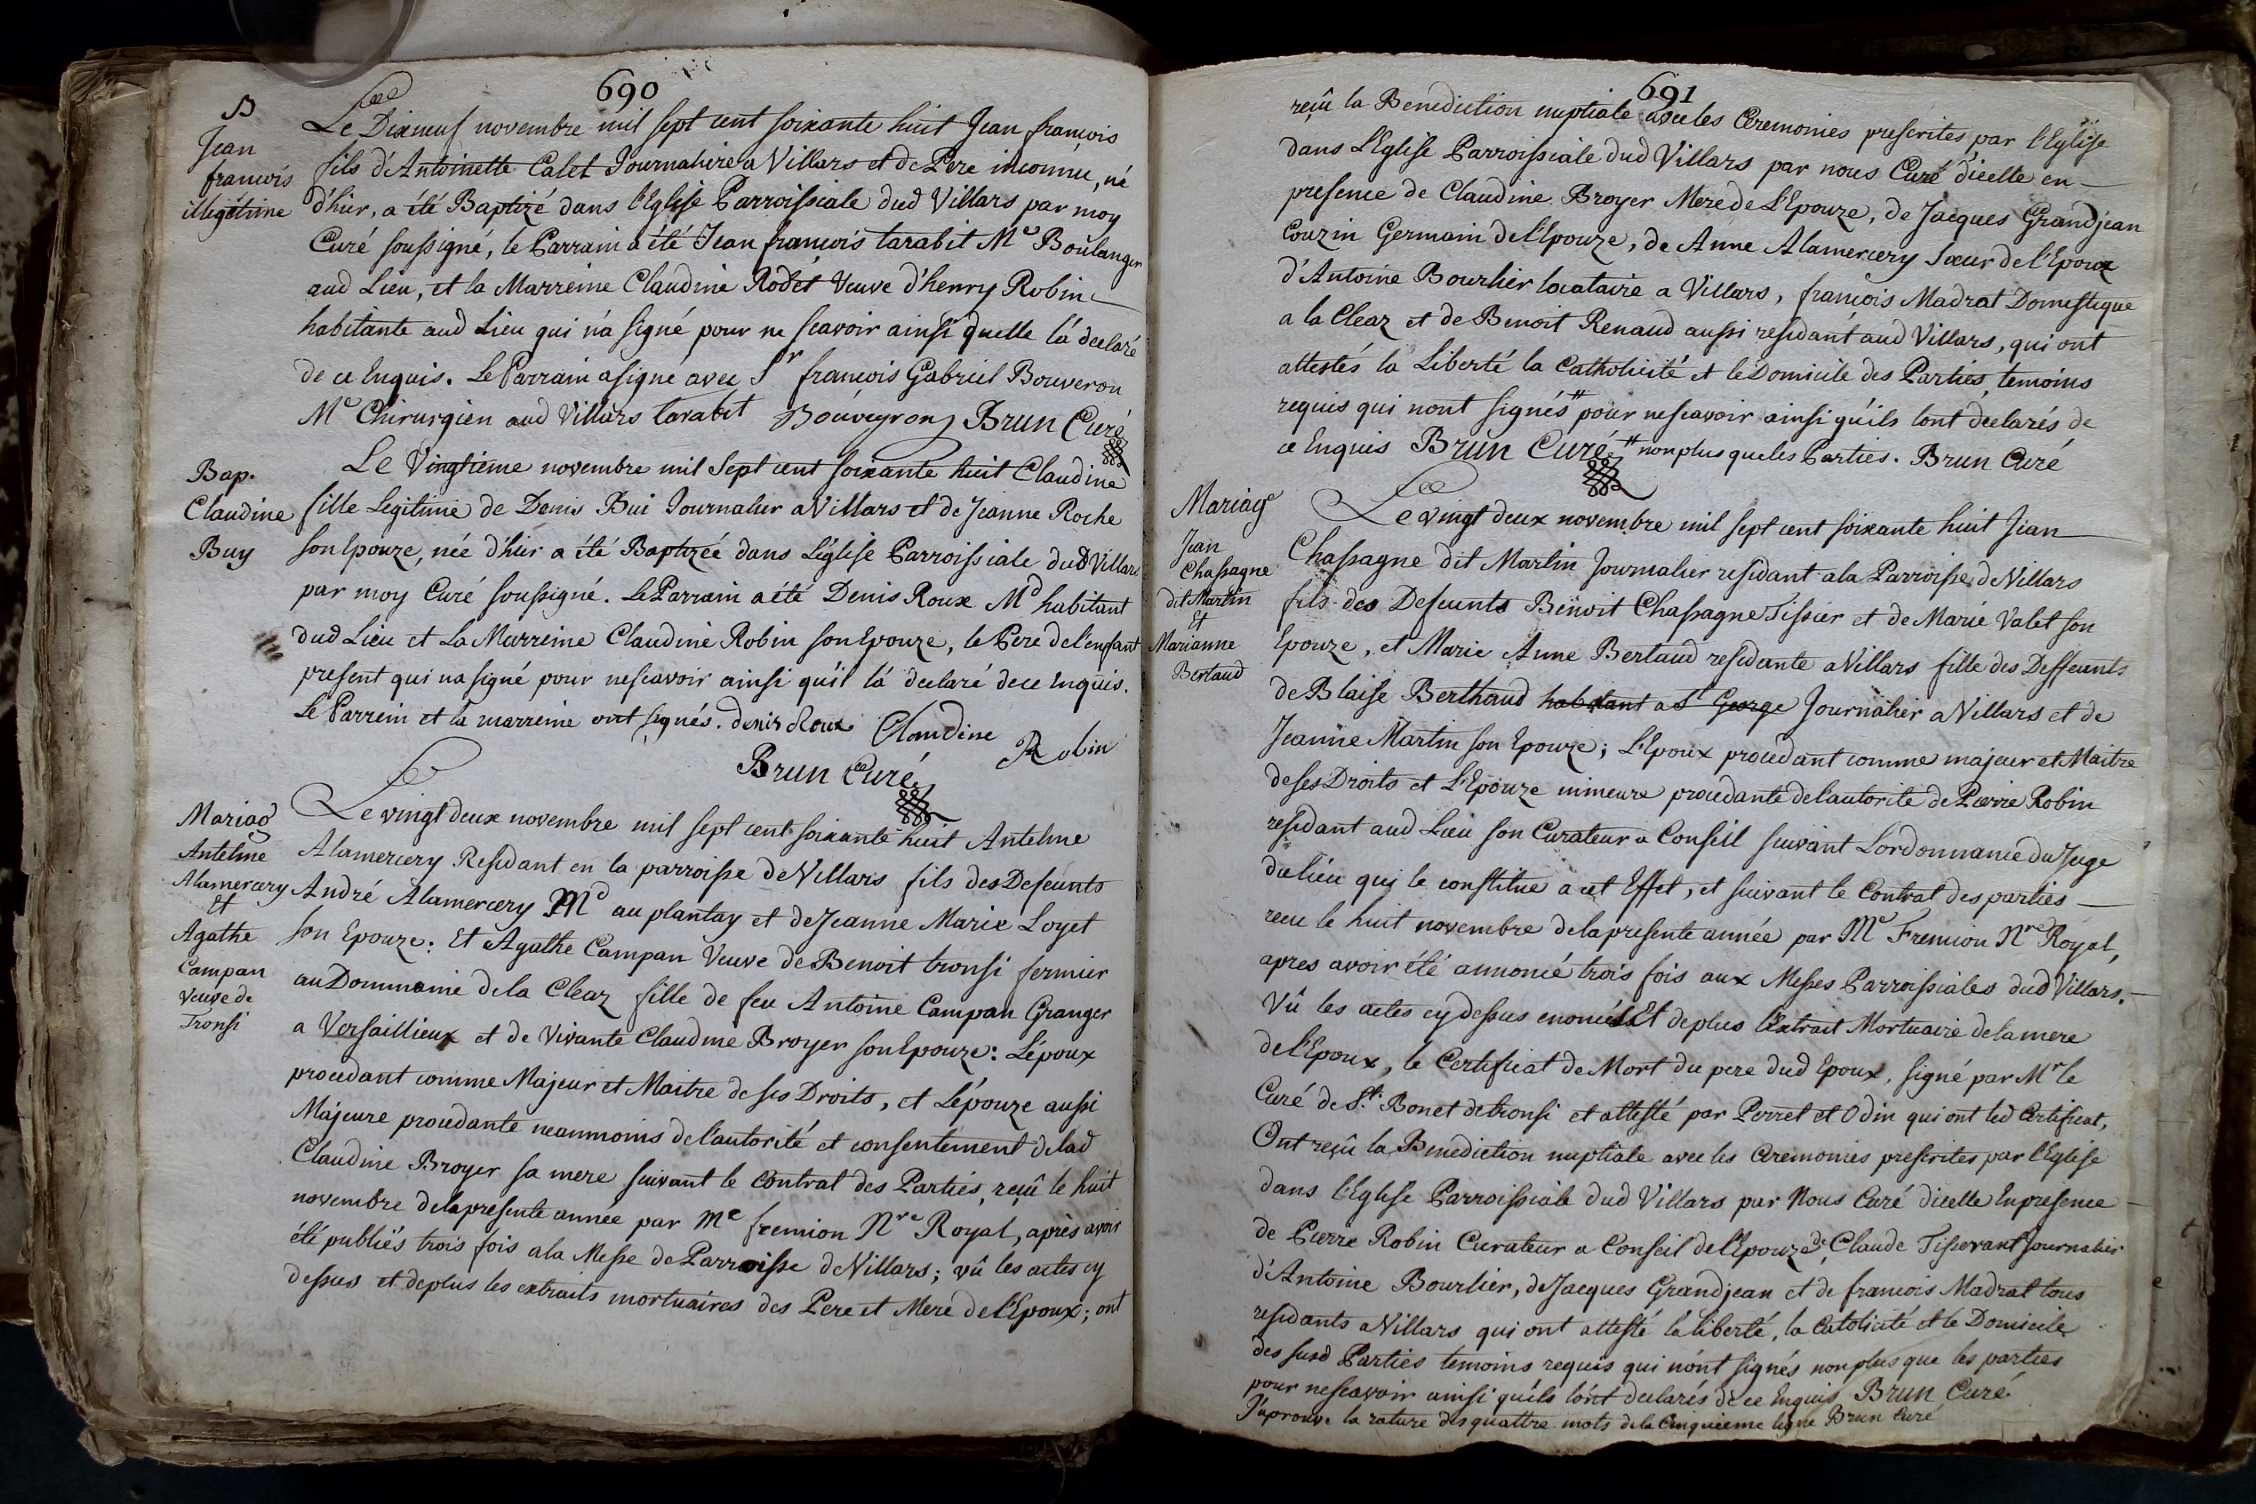 690
B
Jean
francois
illegitime
Le Dixneuf novembre mil sept cent soixante huit Jean francois
fils d'Antoinette Calet Journaliere a Villars et de Pere inconnu, né
d'hier, a été Baptizé dans l'Eglise Parroissiale dud Villars par moy
Curé soussigné, le Parrain a été Jean francois tarabit Me Boulanger
aud Lieu, et la Marreine Claudine Rodet Veuve d'henry Robin
habitante aud Lieu qui n'a signé pour ne scavoir ainsi quelle la declaré
de ce Enquis. Le Parrain a signé avec Sr francois Gabriel Bouveron
Me Chirurgien aud Villars tarabit Bouveyron Brun Curé
Bap.
Claudine
Buy
Le Vingtieme novembre mil Sept cent soixante huit Claudine
fille Legitime de Denis Bui Journalier a Villars et de Jeanne Roche
son Epouze, née d'hier a été Baptizée dans L'église Parroissiale dud Villars
par moy Curé soussigné. Le Parrain a été Denis Roux Md habitant
dud Lieu et La Marreine Claudine Robin son Epouze, le Pere de l'enfant
present qui na signé pour nescavoir ainsi qu'il la declaré dece Enquis.
Le Parrein et la marreine ont signés. denis Roux Claudine
Robin
Brun Curé
Mariag
Antelme
Alamercery
et
Agathe
Campan
veuve de
Tronsi
Le vingt deux novembre mil sept cent soixante huit Antelme
Alamercery Residant en la parroisse de Villars fils des Defeunts
André Alamercery Md au plantay et de Jeanne Marie Loyet
son Epouze: Et Agathe Campan Veuve de Benoit tronsi fermier
au Dommaine de la Cleaz fille de feu Antoine Campan Granger
a Versaillieux et de Vivante Claudine Broyer son Epouze: L'époux
procedant comme Majeur et Maitre de ses Droits, et L'épouze aussi
Majeure procedante neanmoins de l'autorité et consentement de lad
Claudine Broyer sa mere suivant le Contrat des Parties, reçû le huit
novembre de la presente année par Me fremion Nre Royal, après avoir
été publiés trois fois a la Messe de Parroisse de Villars; vû les actes cy
dessus et deplus les extraits mortuaires des Pere et Mere de l'Epoux; ont
691
reçû la Benediction nuptiale avec les Ceremonies prescrites par l'Eglise
dans L'Eglise Parroissiale dud Villars par nous Curé d'icelle en
presence de Claudine Broyer Mere de L'Epouze, de Jacques Grandjean
Couzin Germain de l'Epouze, de Anne Alamercery Sœur de l'Epoux
d'Antoine Bourlier locataire a Villars, francois Madrat Domestique
a la Cleaz et de Benoit Renaud aussi residant aud Villars, qui ont
attestés la Liberté la Catholicité et le Domicile des Parties, temoins
requis qui nont signés # pour nescavoir ainsi qu'ils lont declarés de
ce Enquis Brun Curé # non plus que les Parties. Brun Curé
Mariag
Jean
Chassagne
dit Martin
et
Marianne
Bertaud
Le vingt deux novembre mil sept cent soixante huit Jean
Chassagne dit Martin Journalier residant a la Parroisse de Villars
fils des Defeunts Benoit Chassagne Tissier et de Marie Valet son
Epouze, et Marie Anne Bertaud residante a Villars fille des Deffeunts
de Blaise Berthaud habitant a St George Journalier a Villars et de
Jeanne Martin son Epouze; L'Epoux procedant comme majeur et Maitre
de ses Droits et L'Epouze mineure procedante de l'autorite de Pierre Robin
residant aud Lieu son Curateur a Conseil suivant Lordonnance du Juge
du lieu qui le constitue a cet Effet, et suivant le Contrat des parties
recu le huit novembre de la presente année par Me Fremion Nre Royal,
apres avoir été annoncé trois fois aux Messes Parroissiales dud Villars.
Vû les actes cy dessus enoncés Et de plus l'Extrait Mortuaire de la mere
de l'Epoux, le Certificat de Mort du pere dud Epoux, signé par Mr le
Curé de St. Bonet de tronsi et attesté par Perret et Odin qui ont led Certificat,
Ont reçû la Benediction nuptiale avec les Ceremonies prescrites par l'Eglise
dans l'Eglise Parroissiale dud Villars par Nous Curé dicelle En presence
de Pierre Robin Curateur a Conseil de l'Epouze, de Claude Tisserant Journalier
d'Antoine Bourlier, de Jacques Grandjean et de francois Madrat tous
residants a Villars qui ont attesté la liberté, la Catolicité et le Domicile
des susd Parties temoins requis qui n'ont signés non plus que les parties
pour nescavoir ainsi qu'ils l'ont declarés de ce Enquis Brun Curé
J'aprouve la rature des quattre mots de la Cinquieme ligne Brun Curé